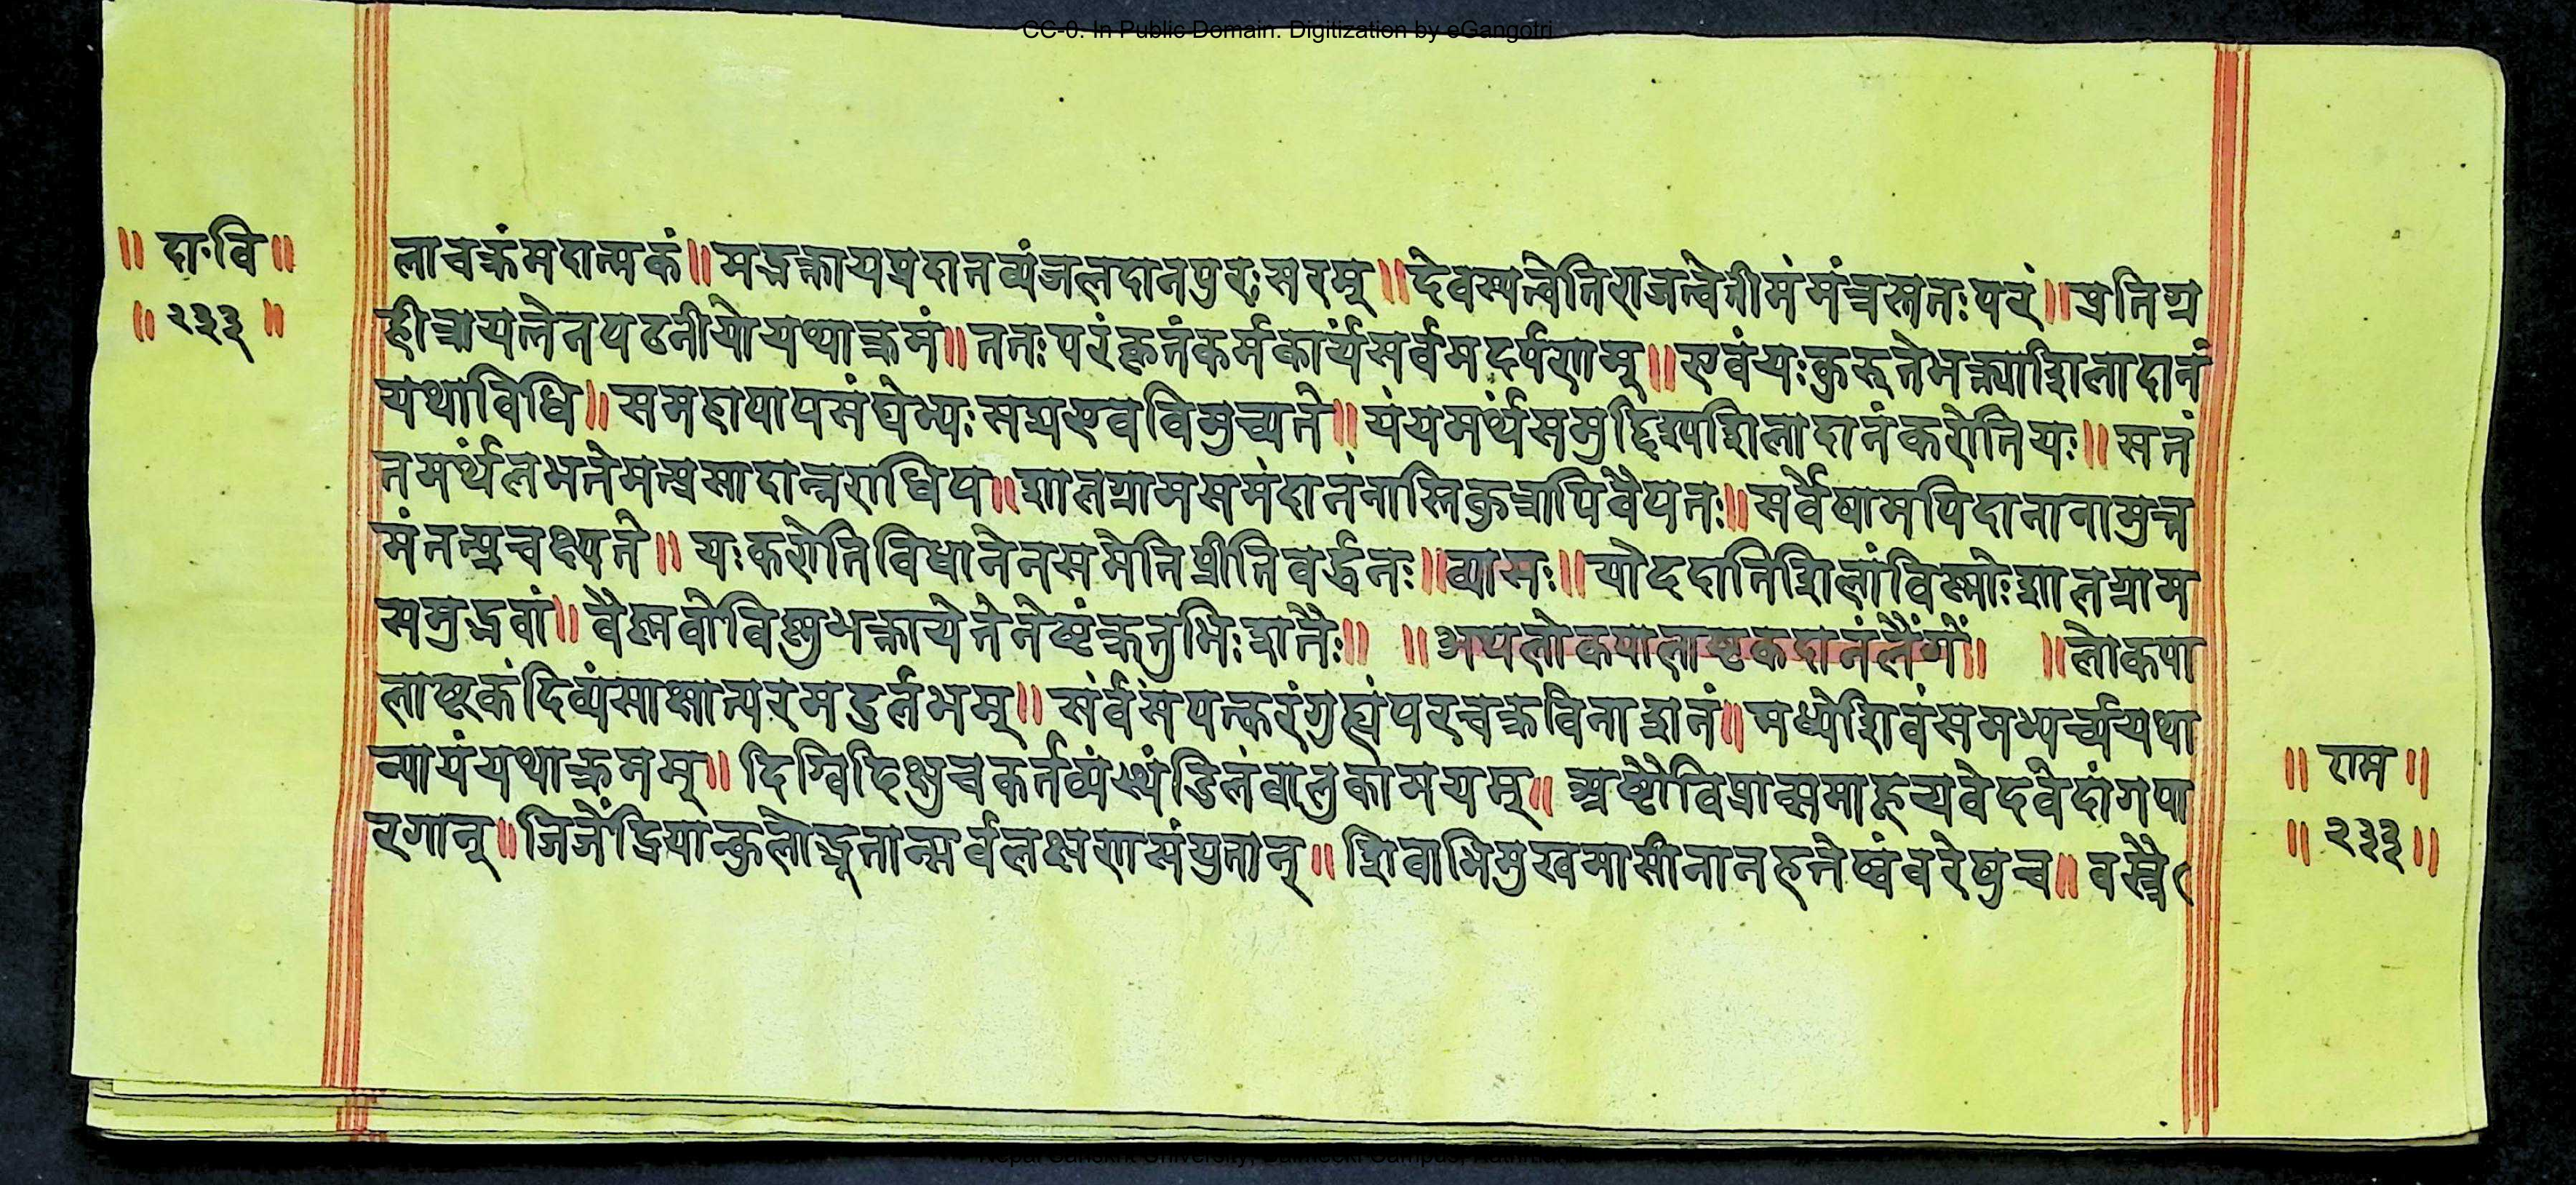 CC-0. In Public Domain. Digitization by eGangotri
॥ दा॰वि ॥
॥ २३३ ॥
लाचक्रंमदात्मकं॥ मद्भक्तायप्रदातव्यंजलदानपुरःसरम्॥ देवस्यत्वेतिराजन्वेतीमंमंत्रस्ततःपरं॥ प्रतिग्र
हीत्रायत्नेनपठनीयोयथाक्रमं॥ ततःपरंकृतंकर्मकार्यंसर्वमदर्पणम्॥ एवंयःकुरुतेभक्त्याशिलादानं
यथाविधि॥ समहापापसंघेभ्यःसद्यएवविमुच्यते॥ यंयमर्थंसमुद्दिश्यशिलादानंकरोतियः॥ सतं
तमर्थंलभतेमत्प्रसादान्नराधिप॥ शालग्रामसमंदानंनास्तिकुत्रापिवैयतः॥ सर्वेषामपिदानानामुत्त
मंतत्प्रचक्ष्यते॥ यःकरोतिविधानेनसमेतिप्रीतिवर्द्धनः॥ व्यासः॥ योददातिशिलांविष्णोःशालग्राम
समुद्भवां॥ वैष्णवोविष्णुभक्तायेतेनेष्टंक्रतुभिःशतैः॥ ॥ अथलोकपालाष्टकदानंलैंगें॥ ॥ लोकपा
लाष्टकंदिव्यंसाक्षात्परमदुर्लभम्॥ सर्वसंपत्करंगुह्यंपरचक्रविनाशनं॥ मध्येशिवंसमभ्यर्च्ययथा
न्यायंयथाक्रमम्॥ दिग्विदिक्षुचकर्तव्यंस्थंडिलंवालुकामयम्॥ अष्टौविप्रान्समाहूत्यवेदवेदांगपा
रगान्॥ जितेंद्रियान्कुलोद्भूतान्सर्वलक्षणसंयुतान्॥ शिवाभिमुखमासीनानहतेष्वंवरेषुच॥ वस्त्रै
॥ राम ॥
॥ २३३ ॥